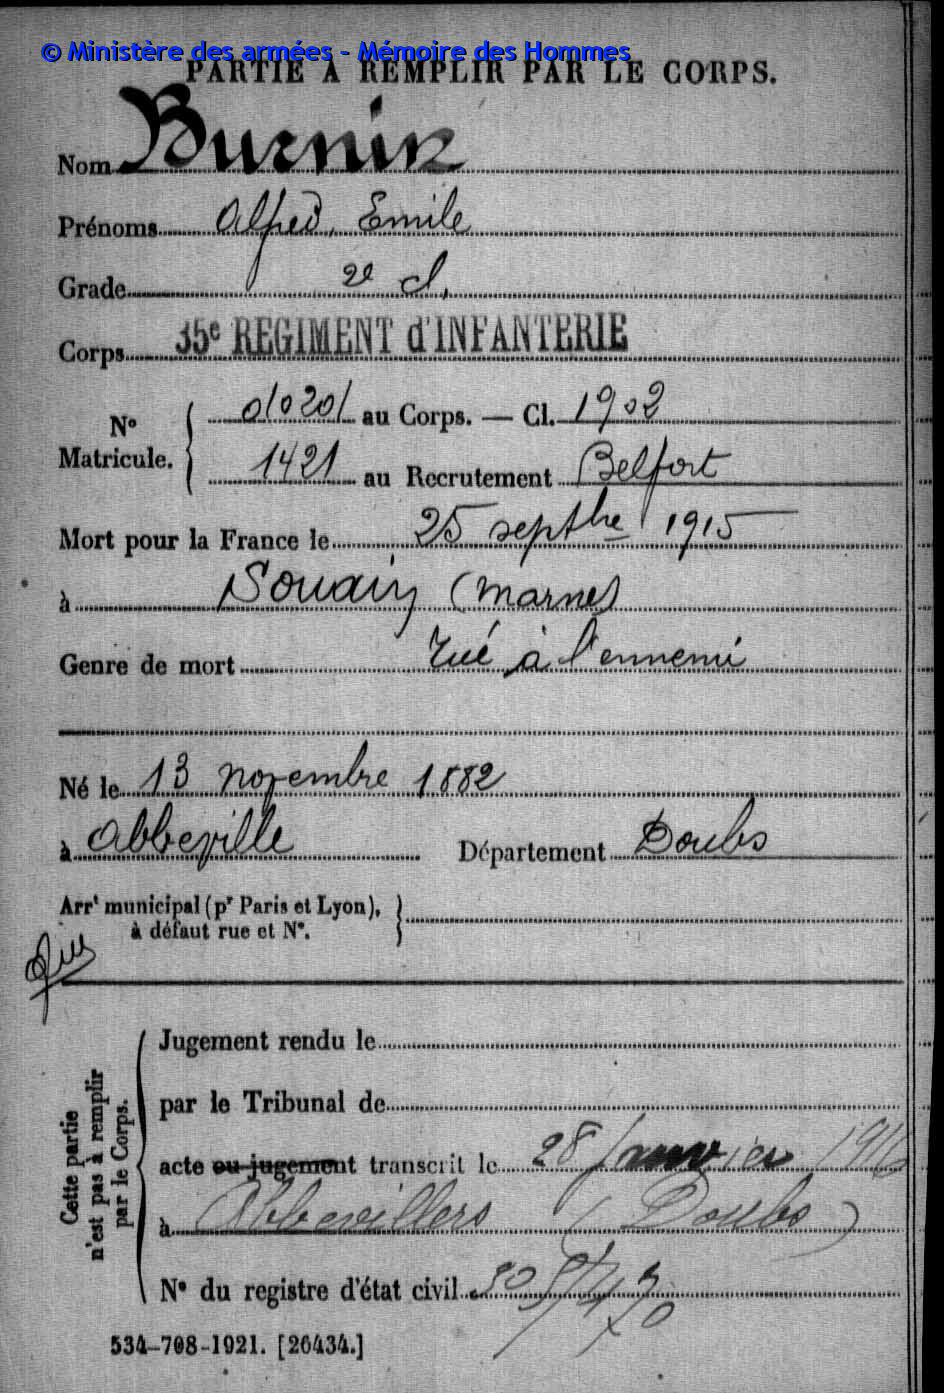 © Ministère des armées - Mémoire des Hommes
PARTIE A REMPLIR PAR LE CORPS.
Nom Burnier
Prénoms Alfred, Emile
Grade 2e cl.
Corps 35e REGIMENT d'INFANTERIE
No Matricule. 010201 au Corps. — Cl. 1902
1421 au Recrutement Belfort
Mort pour la France le 25 septbre 1915
à Souain (Marne)
Genre de mort Tué à l'ennemi
Né le 13 novembre 1882
à Abbeville Département Doubs
Arrt municipal (pr Paris et Lyon),
à défaut rue et No.
Cette partie
n'est pas à remplir
par le Corps.
Jugement rendu le
par le Tribunal de
acte ou jugement transcrit le 28 janvier 1916
à Abbevillers (Doubs)
No du registre d'état civil
534-708-1921. [26434.]